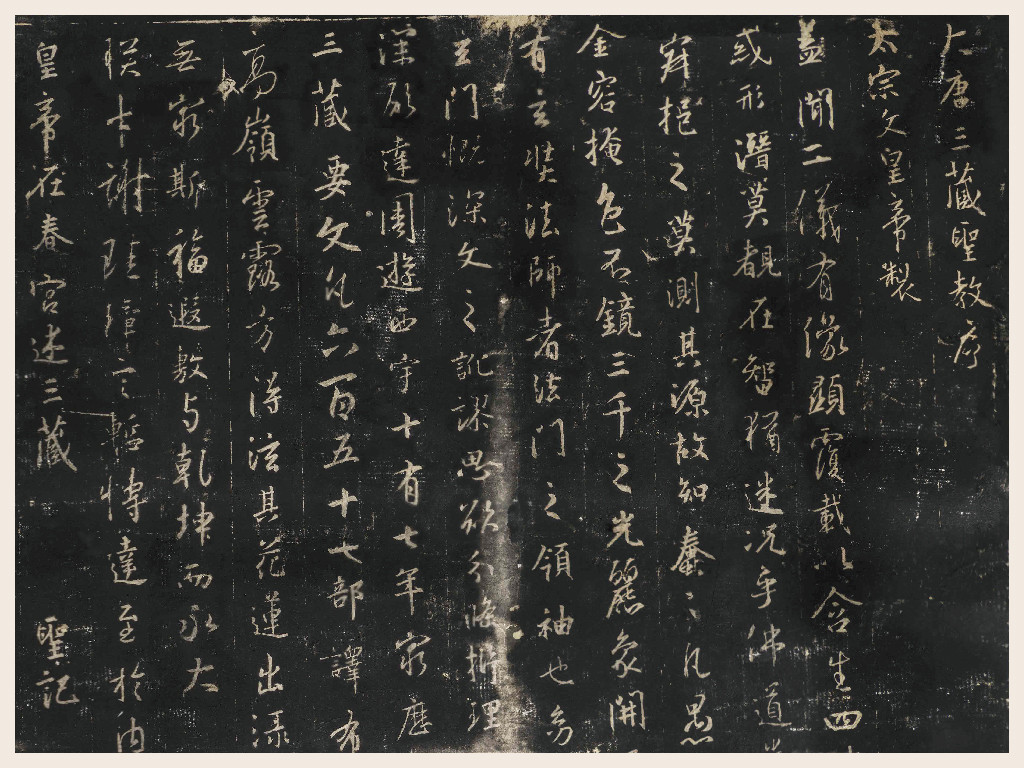 大唐三藏聖教序
太宗文皇帝製
蓋聞二儀有像顯覆載以含生四
惑形潛莫覩在智猶迷況乎佛道
宰挹之莫測其源故知蠢蠢凡愚
金容掩色不鏡三千之光麗象開
有玄奘法師者法門之領袖也幼
玄門慨深文之訛謬思欲分條析理
深願達周遊西宇十有七年窮歷
三藏要文凡六百五十七部譯布
高嶺雲露方得泫其花蓮出淥
無窮斯福遐敷與乾坤而永大
朕才謝珪璋言慚博達至於內
皇帝在春宮述三藏 聖記